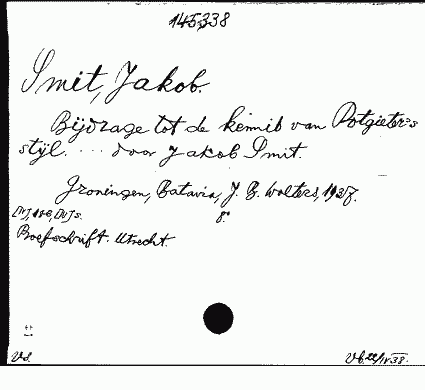 145338
Smit, Jakob.
Bijdrage tot de kennis van Potgieter's
stijl. ... door Jakob Smit.
Groningen, Batavia, J. B. Wolters, 1937.
8°
Proefschrift. Utrecht.
Vd.